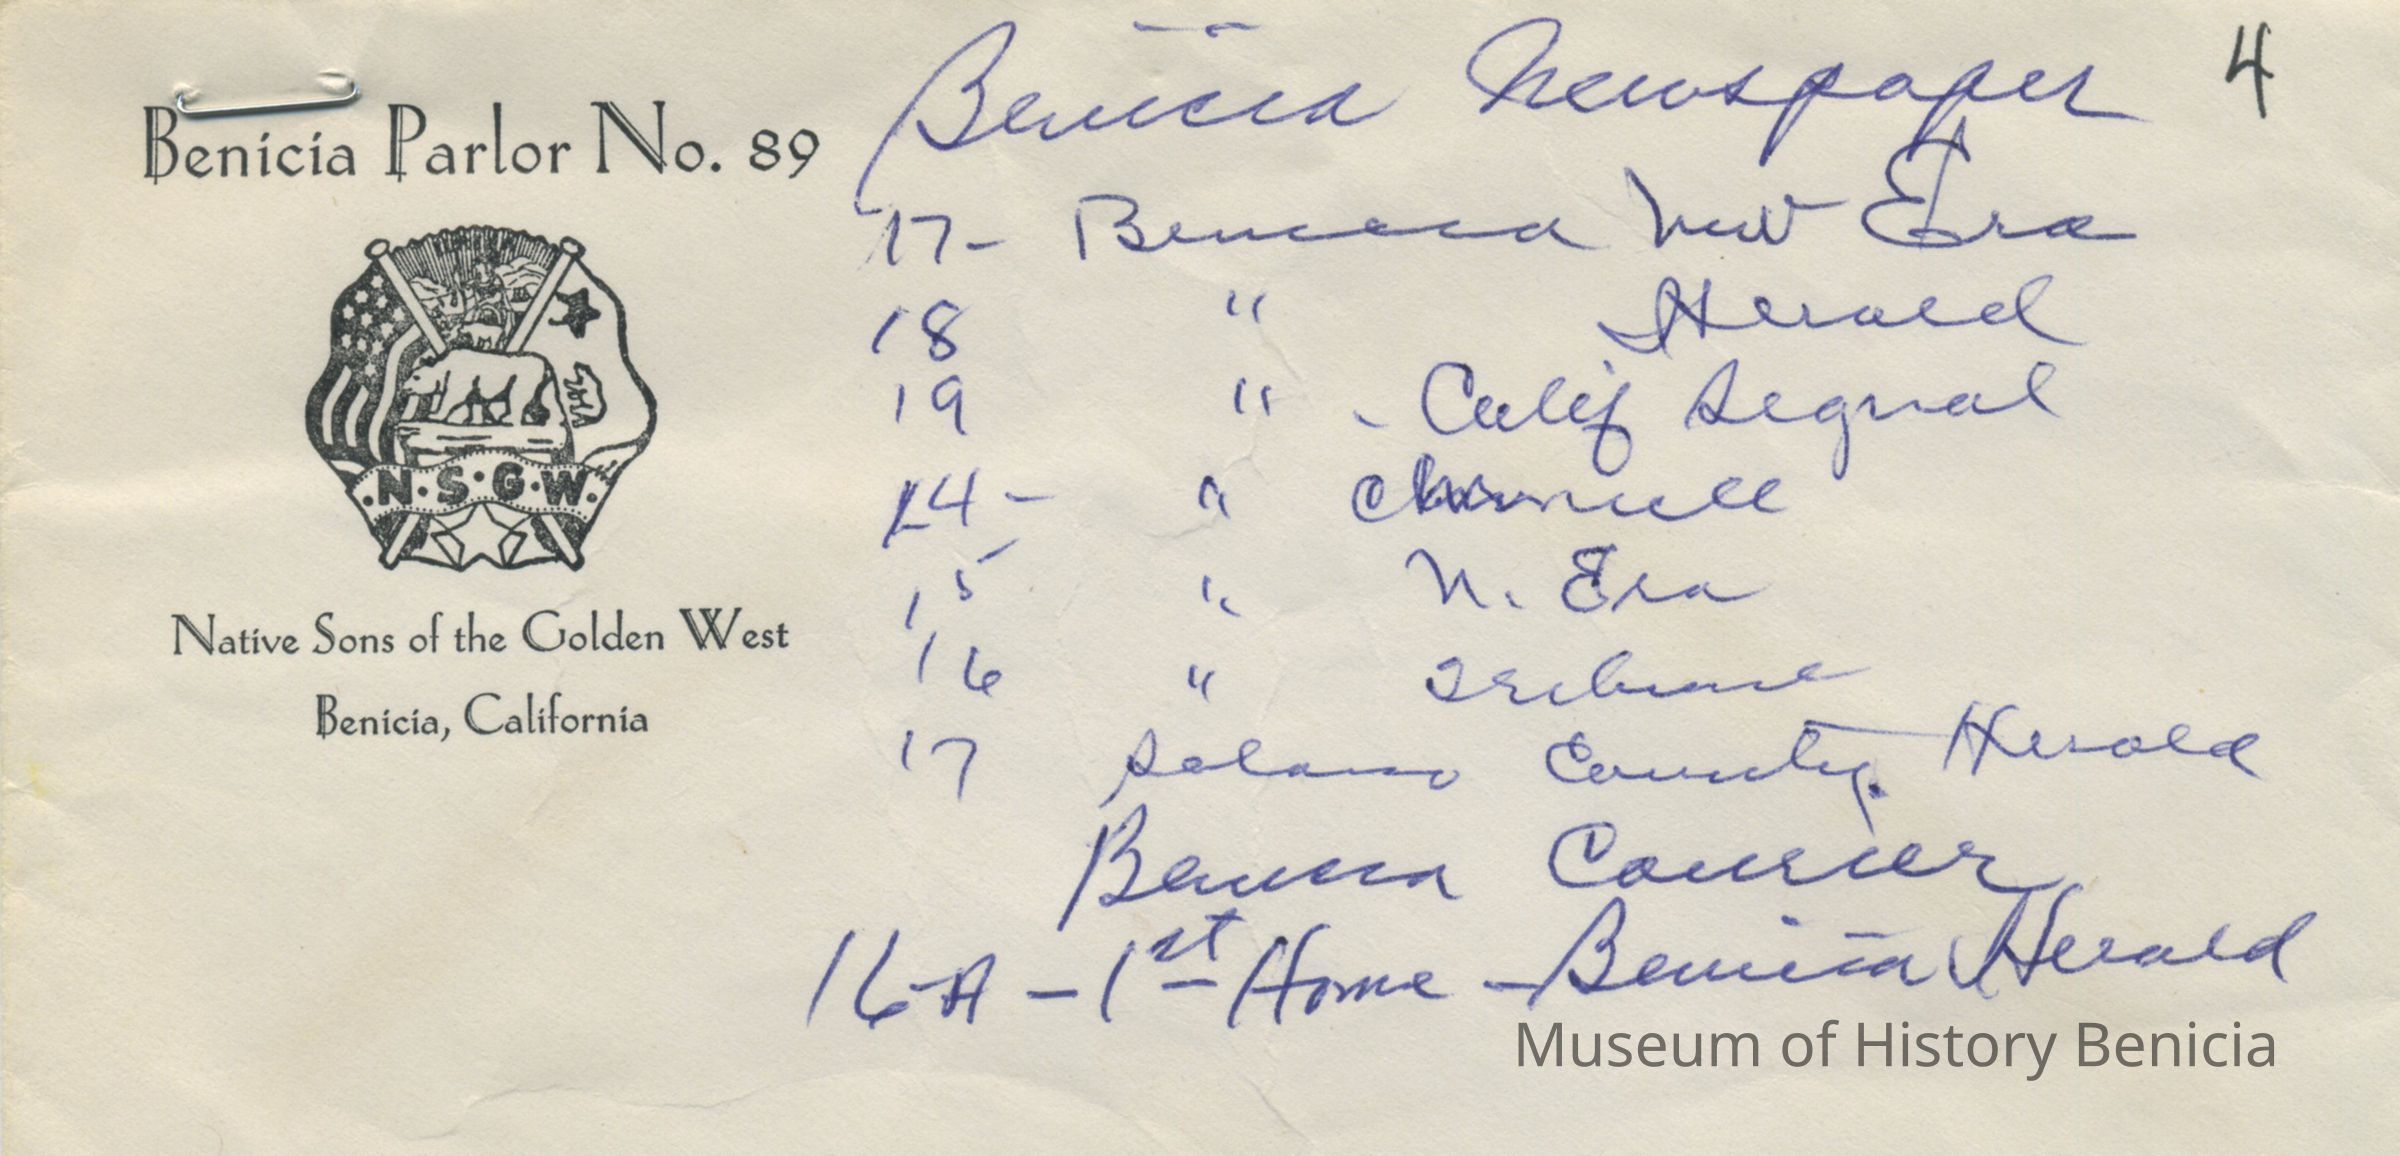 Benicia Parlor No. 89
N·S·G·W
Native Sons of the Golden West
Benicia, California
Benicia Newspaper 4
17- Benicia New Era
18 " Herald
19 " - Calif Signal
14 - "
15 " N. Era
16 " Tribune
17 Solano County Herald
Benicia Courier
16-A - 1st Home - Benicia Herald
Museum of History Benicia